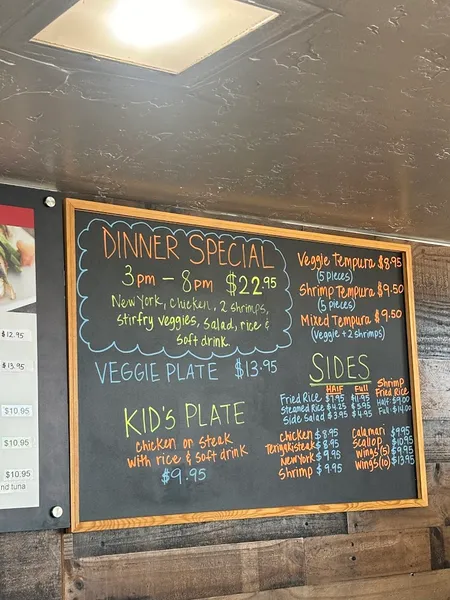 DINNER SPECIAL
3pm - 8pm $22.95
New York, chicken, 2 shrimps,
stirfry veggies, salad, rice &
soft drink
VEGGIE PLATE $13.95
KID'S PLATE
chicken or steak
with rice & soft drink
$9.95
Veggie Tempura $8.95
(5 pieces)
Shrimp Tempura $9.50
(5 pieces)
Mixed Tempura $9.50
(Veggie + 2 shrimps)
SIDES
HALF FULL
Fried Rice $7.95 $11.95
Steamed Rice $4.25 $5.95
Side Salad $3.95 $4.95
Shrimp
Fried Rice
Half: $9.00
Full: $14.00
chicken $8.95
Teriyaki steak $8.95
New York $9.95
Shrimp $9.95
Calamari $9.95
Scallop $10.95
Wings (5) $9.95
Wings (10) $13.95
$12.95
$13.95
$10.95
$10.95
$10.95
nd tuna